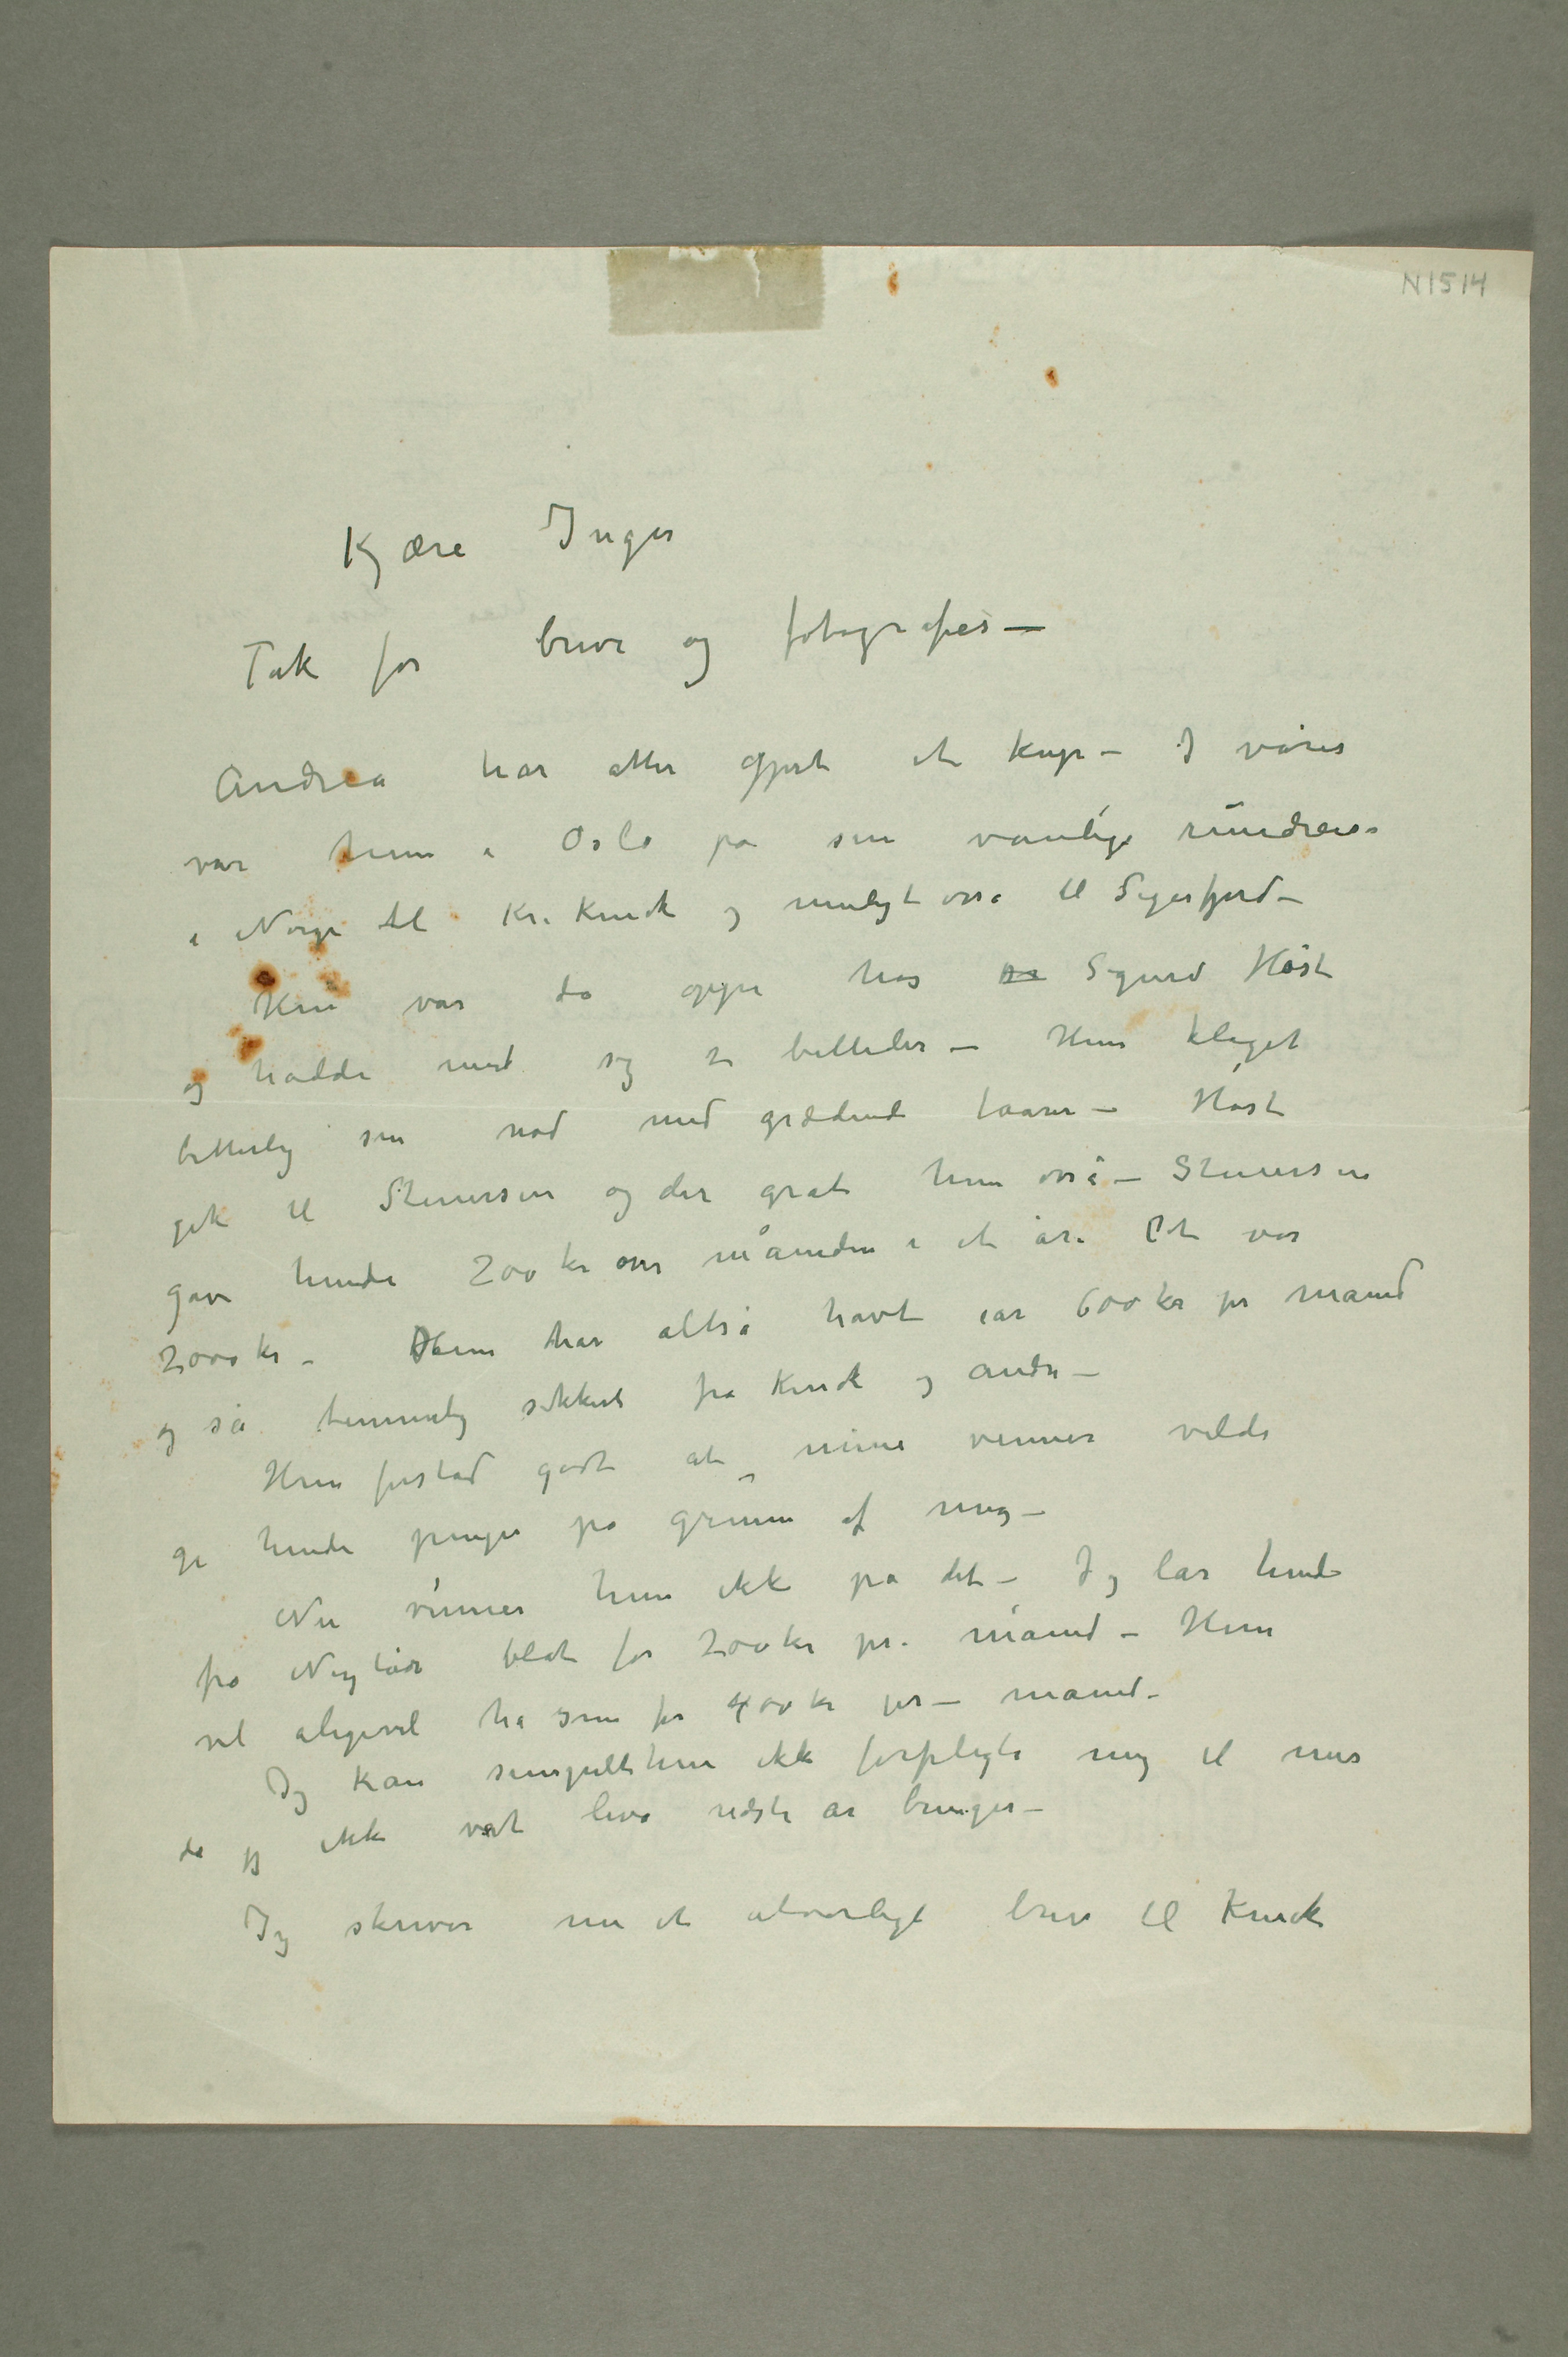 N1514
Kjære Inger
Tak for breve og fotografier –
Andrea har atter gjort et kup – I våres
var hun i Oslo på sin vanlige rundreise
i Norge til Kr. Kinck og muligt osså til Sigerfjord –
Hun var da oppe hos Sigurd Høst
og hadde med sig billeder – Hun klaget
bitterlig sin nød med grædende taarer – Høst
gik til Stenersen og der gråt hun osså – Stenersen
gav hende 200 kr om måneden i et år. Det var
2000 kr – Hun har altså havt iår 600 kr pr måned
og så temmelig sikkert fra Kinck og andre –
Hun forstod godt at mine venner vilde
gi hende penge på grunn af mig –
Nu vinner hun ikke på det – Jeg lar hende
fra Nyttår blot få 200 kr pr. måned – Hun
vil aligevel ha som før 400 kr pr – måned –
Jeg kan simpelthen ikke forpligte mig til mer
da jeg ikke vet hva næste år bringer –
Jeg skriver nu et alvorligt brev til Kinck